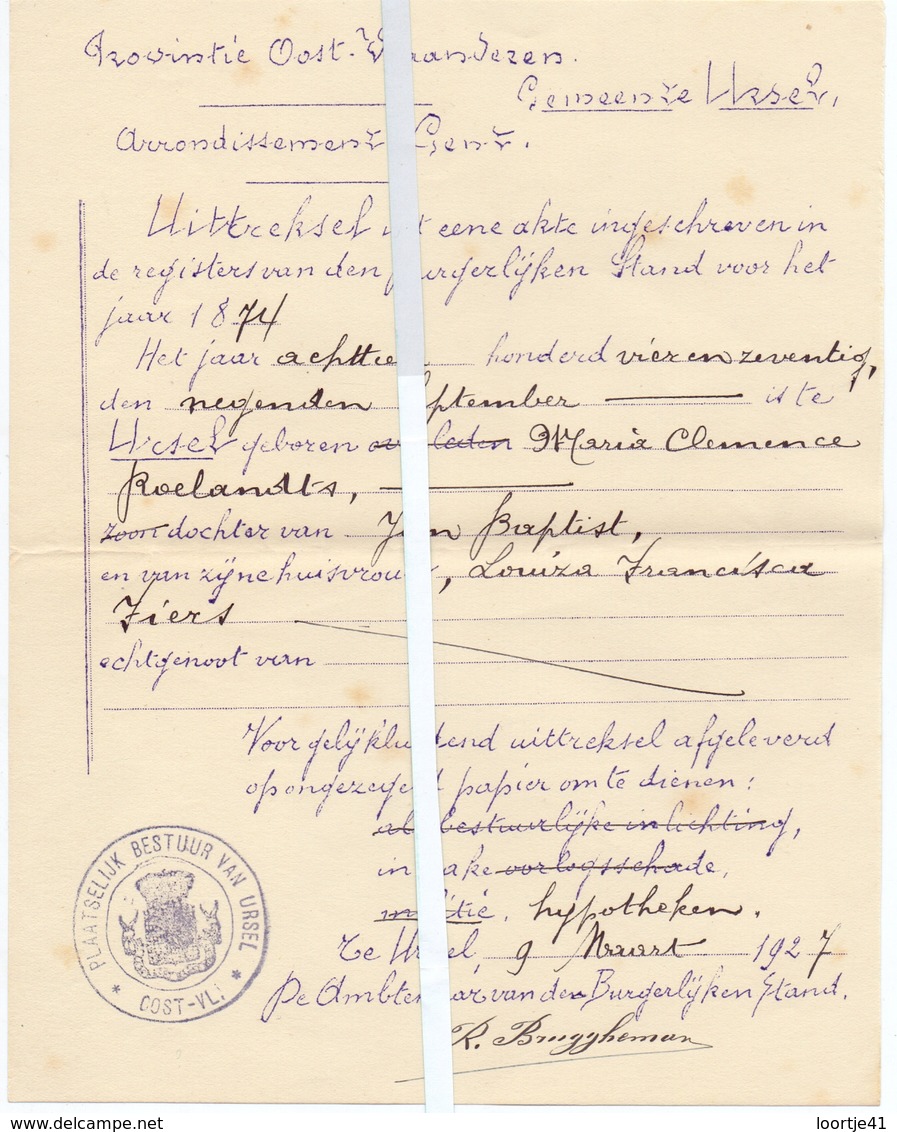 Provintie Oost-Vlaanderen.
Gemeente Ursel.
Arrondissement Gent.
Uittreksel uit eene akte ingeschreven in
de registers van den Burgerlijken Stand voor het
jaar 1874
Het jaar achttien honderd vier en zeventig,
den negenden September is te
Ursel geboren overleden Maria Clemence
Roelandts,
zoon dochter van Jan Baptist,
en van zijne huisvrouw, Louiza Francisca
Fiers
echtgenoot van
Voor gelijkluidend uittreksel afgeleverd
op ongezegeld papier om te dienen:
als bestuurlijke inlichting,
in zake oorlogsschade,
militie, hypotheken.
Te Ursel, 9 Maart 1927
De Ambtenaar van den Burgerlijken Stand.
R. Bruggheman
* PLAATSELIJK BESTUUR VAN URSEL *
OOST-VL.
loortje41